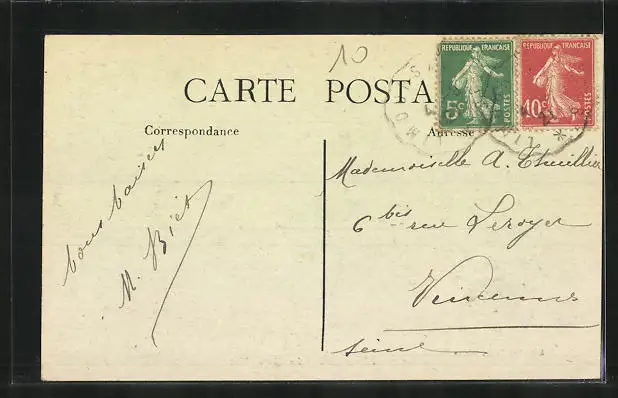 10
CARTE POSTA
REPUBLIQUE FRANÇAISE
5c
POSTES
REPUBLIQUE FRANÇAISE
10c
POSTES
Correspondance
Adresse
bons baisers
M. Biet
Mademoiselle A. Thuillier
6 bis rue Leroyer
Vincennes
Seine